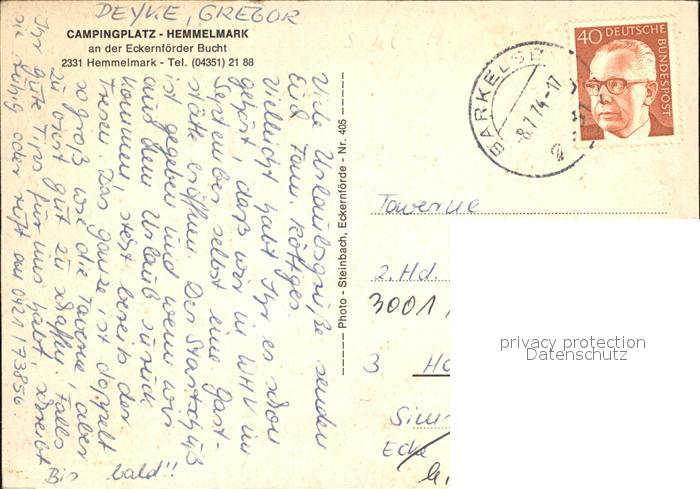 DEYKE, GREGOR
CAMPINGPLATZ - HEMMELMARK
an der Eckernförder Bucht
2331 Hemmelmark - Tel. (04351) 21 88
Viele Urlaubsgrüße senden
Eud Fam. Köttges.
Vielleicht habt Ihr es schon
gehört, daß wir in WHV im
September selbst eine Gast-
stätte eröffnen. Der Startschuß
ist gegeben und wenn wir
aus dem Urlaub zurück
kommen, steht bereits der
Tresen. Das ganze ist doppelt
so groß wie die Taverne, aber
zu zweit gut zu schaffen. Falls
Ihr gute Tips für uns habt, schreibt
sie ruhig oder ruft an 0421/73856.
Bis bald!!
Photo - Steinbach, Eckernförde - Nr. 405
40 DEUTSCHE
BUNDESPOST
BARKELSBY
-8.7.74-17
Taverne
2. Hd.
3001
3 Ha
Sim
Ecke
privacy protection
Datenschutz